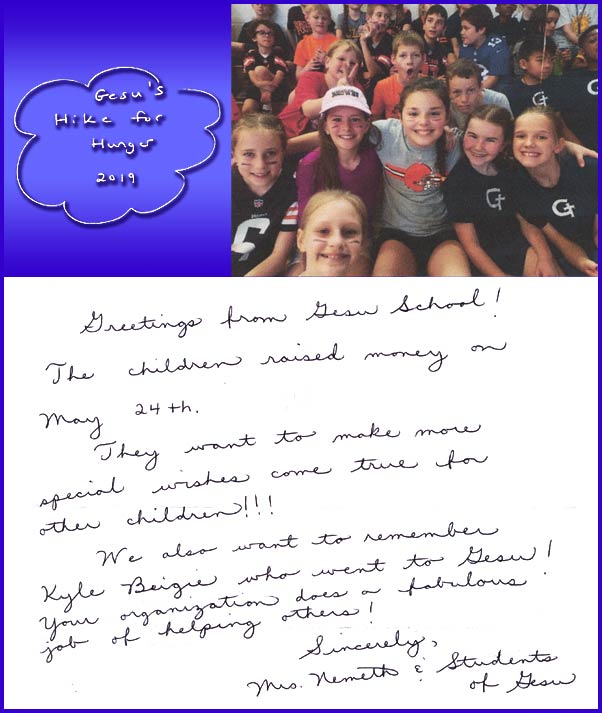 Gesu's
Hike for
Hunger
2019
G
G
Greetings from Gesu School!
The children raised money on
May 24th.
They want to make more
special wishes come true for
other children!!!
We also want to remember
Kyle Beigie who went to Gesu!
Your organization does a fabulous
job of helping others!
Sincerely,
Mrs. Nemeth & Students
of Gesu